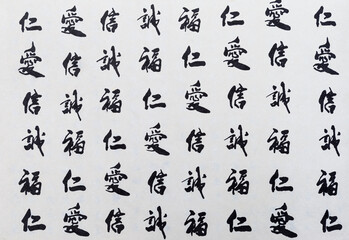 仁 愛 信 誠 福 仁 愛 仁
愛 信 誠 福 仁 愛 信 愛
信 誠 福 仁 愛 信 誠 信
誠 福 仁 愛 信 誠 福 誠
福 仁 愛 信 誠 福 仁 福
仁 愛 信 誠 福 仁 愛 仁